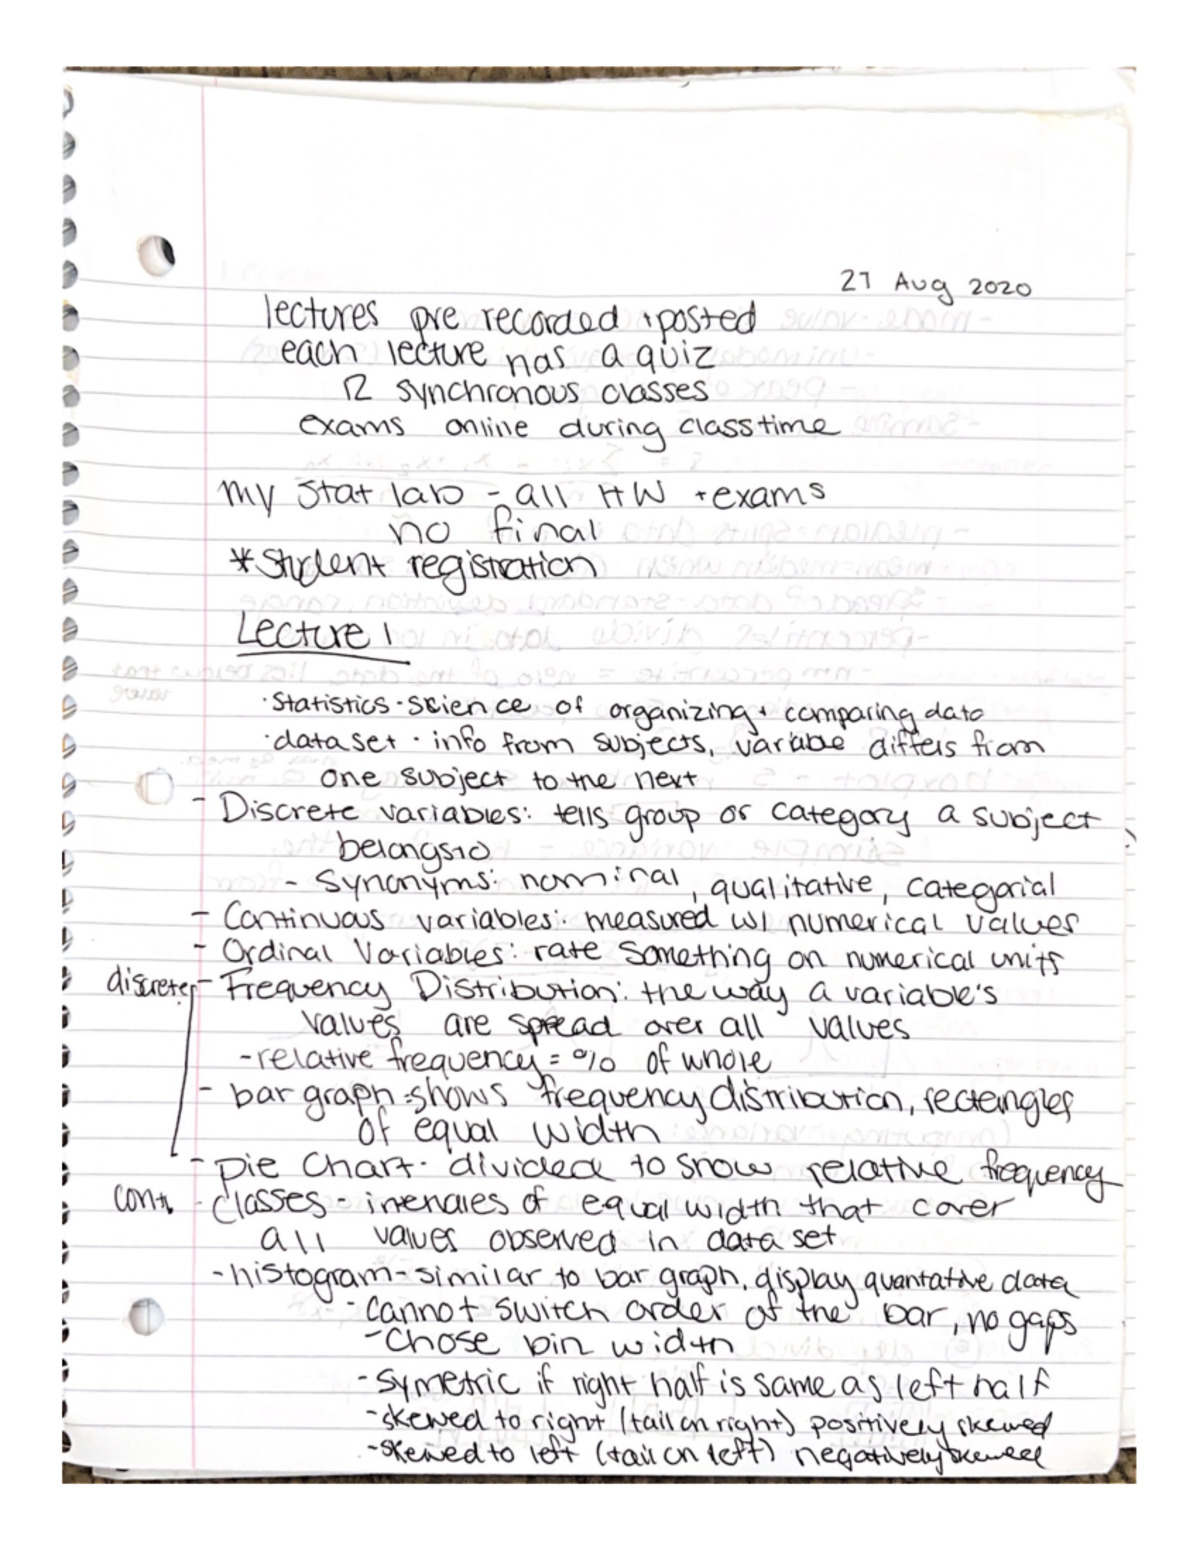 27 Aug 2020
lectures pre recorded + posted
each lecture has a quiz
12 synchronous classes
exams online during class time
my stat lab - all HW + exams
no final
* Student registration
Lecture 1
· Statistics - science of organizing + comparing data
· data set - info from subjects, variable differs from
one subject to the next
- Discrete variables: tells group or category a subject
belongs to
- Synonyms: nominal, qualitative, categorial
- Continuous variables: measured w/ numerical values
- Ordinal Variables: rate something on numerical units
discrete - Frequency Distribution: the way a variable's
values are spread over all values
- relative frequency = % of whole
- bar graph - shows frequency distribution, rectangles
of equal width
- pie chart - divided to show relative frequency
cont. - classes - intervales of equal width that cover
all values observed in data set
- histogram - similar to bar graph, display quantative data
- cannot switch order of the bar, no gaps
- chose bin width
- symetric if right half is same as left half
- skewed to right (tail on right) positively skewed
- skewed to left (tail on left) negatively skewed